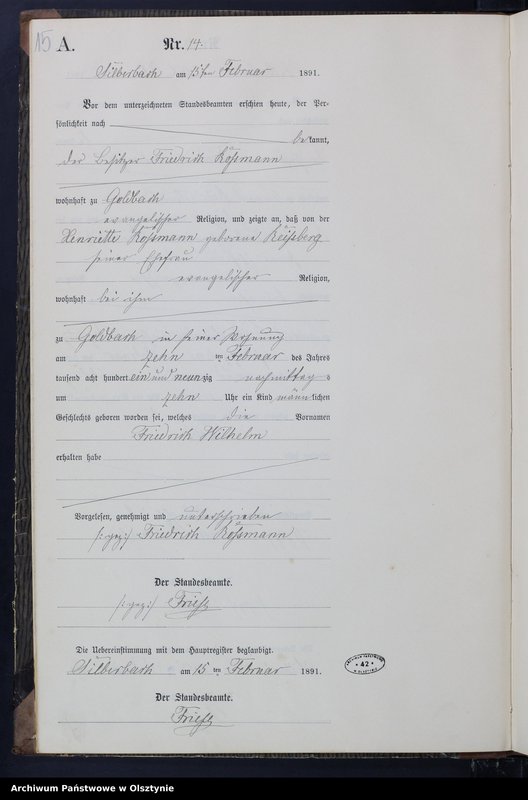 15 A. Nr. 14.
Silberbach am 15ten Februar 1891.
Vor dem unterzeichneten Standesbeamten erschien heute, der Per-
sönlichkeit nach
bekannt,
der Besitzer Friedrich Roßmann
wohnhaft zu Goldbach
evangelischer Religion, und zeigte an, daß von der
Henriette Roßmann geborene
seiner Ehefrau
evangelischer Religion,
wohnhaft bei ihm
zu Goldbach in seiner Wohnung
am zehn ten Februar des Jahres
tausend acht hundert ein und neunzig nachmittag s
um zehn Uhr ein Kind männlichen
Geschlechts geboren worden sei, welches die Vornamen
Friedrich Wilhelm
erhalten habe
Vorgelesen, genehmigt und unterschrieben
/:gez:/ Friedrich Roßmann
Der Standesbeamte.
/:gez:/
Die Uebereinstimmung mit dem Hauptregister beglaubigt.
Silberbach am 15 ten Februar 1891.
Der Standesbeamte.
42
Archiwum Państwowe w Olsztynie